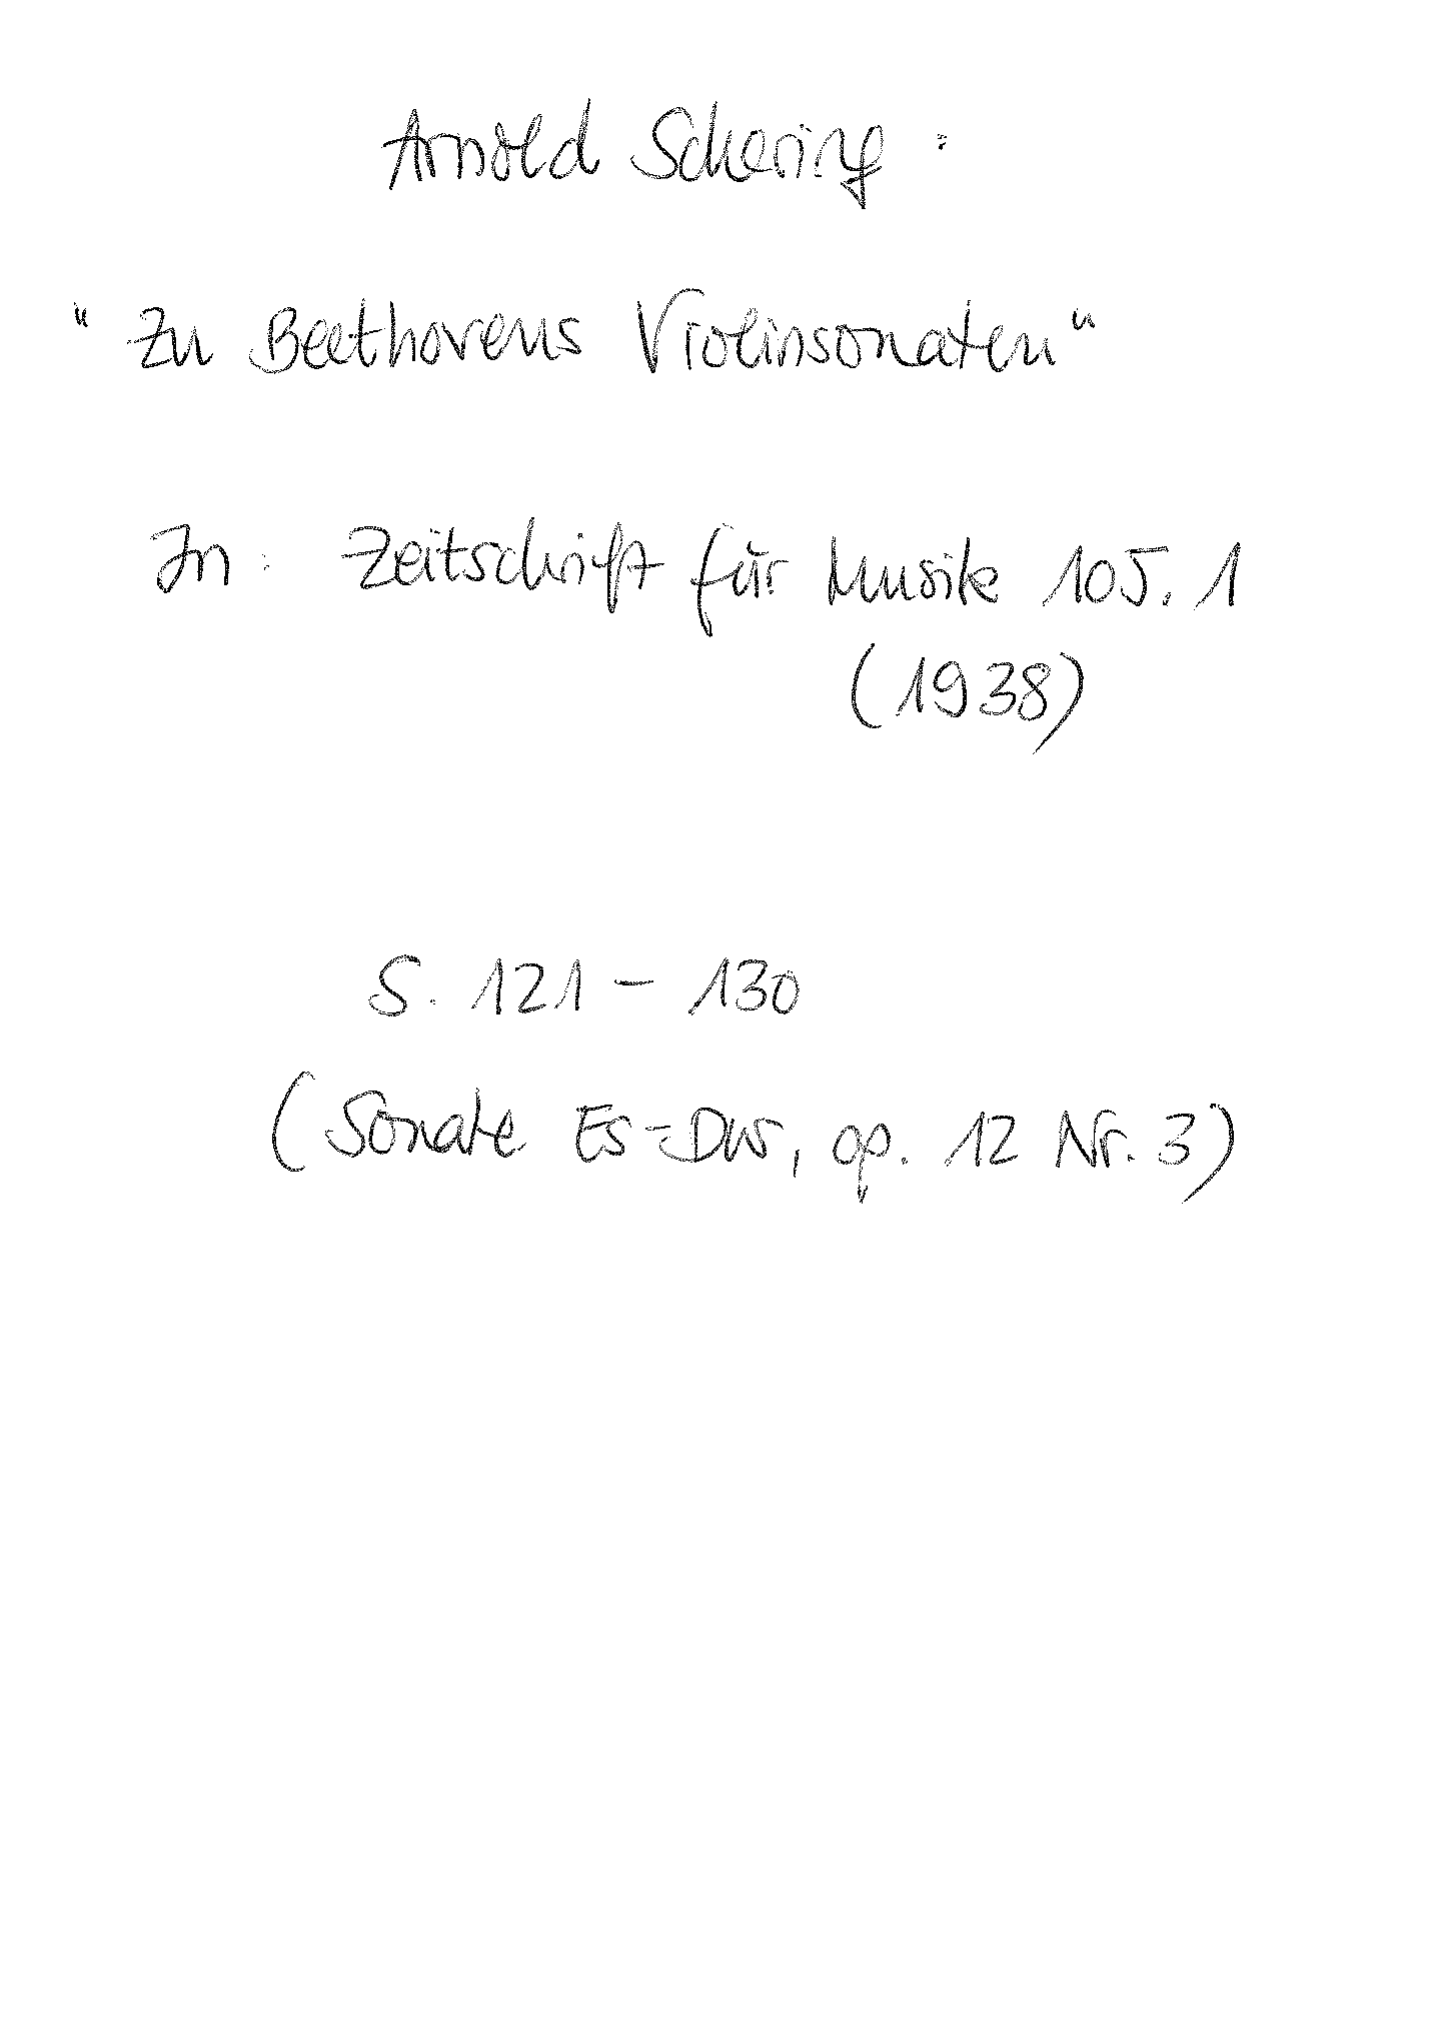 Arnold Schering :
"Zu Beethovens Violinsonaten"
In: Zeitschrift für Musik 105.1
(1938)
S. 121 - 130
(Sonate Es-Dur, op. 12 Nr. 3)